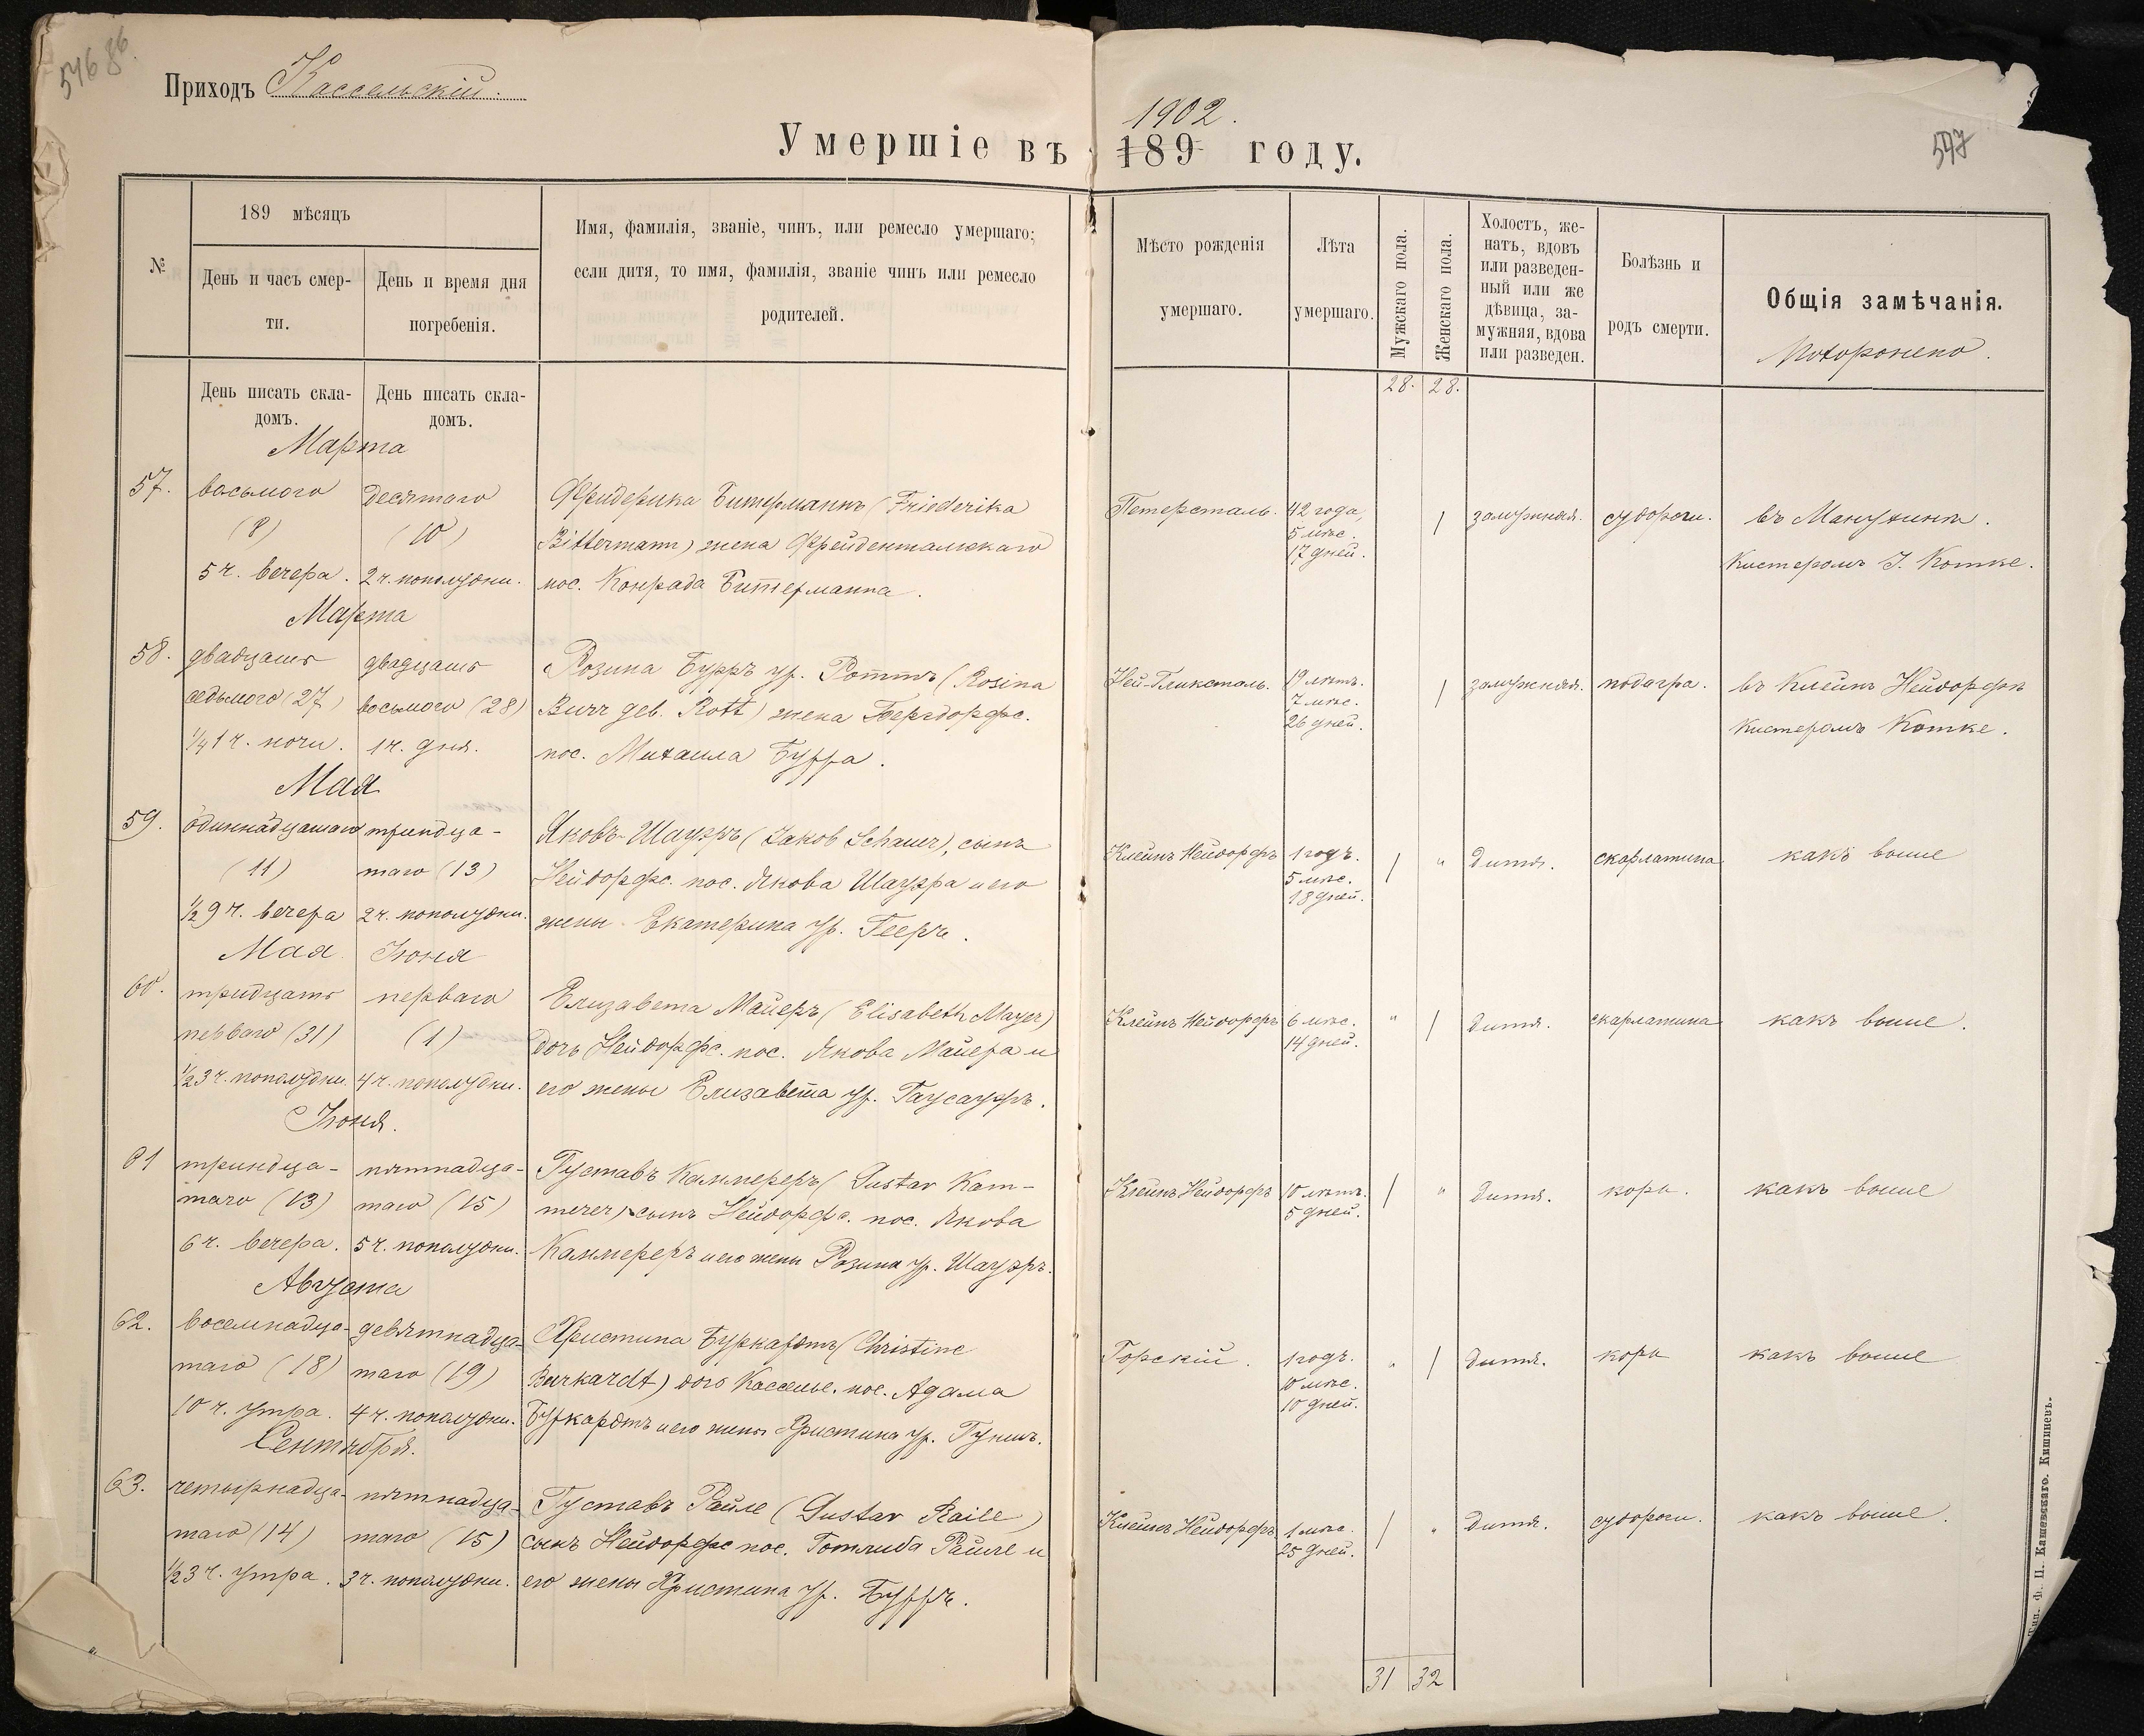 546 86.
Приходъ Кассельскій.
1902.
Умершіе въ 189 году.
547
№
189 мѣсяцъ
День и часъ смер-
ти.
День и время дня
погребенія.
Имя, фамилія, званіе, чинъ, или ремесло умершаго;
если дитя, то имя, фамилія, званіе чинъ или ремесло
родителей.
Мѣсто рожденія
умершаго.
Лѣта
умершаго.
Мужскаго пола.
Женскаго пола.
Холостъ, же-
натъ, вдовъ
или разведен-
ный или же
дѣвица, за-
мужняя, вдова
или разведен.
Болѣзнь и
родъ смерти.
Общія замѣчанія.
Похоронено.
День писать скла-
домъ.
День писать скла-
домъ.
28. 28.
Марта
57. восьмого десятаго Фридерика Битерманнъ (Friederika Петерсталь. 42 года, / замужняя. судороги. въ Манухина.
(8) (10) Bittermann) жена Фрейдентальскаго 5 мѣс. Кистеромъ I. Котке.
5 ч. вечера. 2 ч. пополудни. пос. Конрада Битерманна. 17 дней.
Марта
58. двадцать двадцать Розина Бурръ ур. Роттъ (Rosina Ней-Глюксталь. 19 лѣтъ. / замужняя. подагра. въ Клейнъ Нейдорфѣ
седьмого (27) восьмого (28) Burr geb. Rott) жена Бергдорфс. 7 мѣс. Кистеромъ Котке.
1/4 1 ч. ночи. 1 ч. дня. пос. Михаила Бурра. 26 дней.
Мая
59. одиннадцатаго тринадца- Яковъ Шауэръ (Jakob Schauer), сынъ Клейнъ Нейдорфъ 1 годъ. / " дитя. скарлатина какъ выше
(11) таго (13) Нейдорфс. пос. Якова Шауэра и его 5 мѣс.
1/2 9 ч. вечера 2 ч. пополудни. жены Екатерина ур. Гееръ. 18 дней.
Мая Іюня
60. тридцать перваго Елизавета Майеръ (Elisabeth Mayer) Клейнъ Нейдорфъ 6 мѣс. " / дитя. скарлатина какъ выше.
перваго (31) (1) дочь Нейдорфс. пос. Якова Майера и 14 дней.
1/2 3 ч. пополудни. 4 ч. пополудни. его жены Елизавета ур. Гаусауеръ.
Іюня.
61 тринадца- пятнадца- Густавъ Каммереръ (Gustav Kam- Клейнъ Нейдорфъ 10 лѣтъ. / " дитя. корь. какъ выше
таго (13) таго (15) merer) сынъ Нейдорфс. пос. Якова 5 дней.
6 ч. вечера. 5 ч. пополудни. Каммереръ и его жены Розина ур. Шауэръ.
Августа
62. восемнадца- девятнадца- Христина Буркартъ (Christine Горскій. 1 годъ. " / дитя. корь какъ выше
таго (18) таго (19) Burkardt) дочь Кассельс. пос. Адама 10 мѣс.
10 ч. утра. 4 ч. пополудни. Буркартъ и его жены Христина ур. 10 дней.
Сентября.
63. четырнадца- пятнадца- Густавъ Райле (Gustav Raile) Клейнъ Нейдорфъ 1 мѣс. / " дитя. судороги. какъ выше.
таго (14) таго (15) сынъ Нейдорфс пос. Готлиба Райле и 25 дней.
1/2 3 ч. утра. 3 ч. пополудни. его жены Христина ур. Бурръ.
31 32
П. Кашевскаго. Кишиневъ.